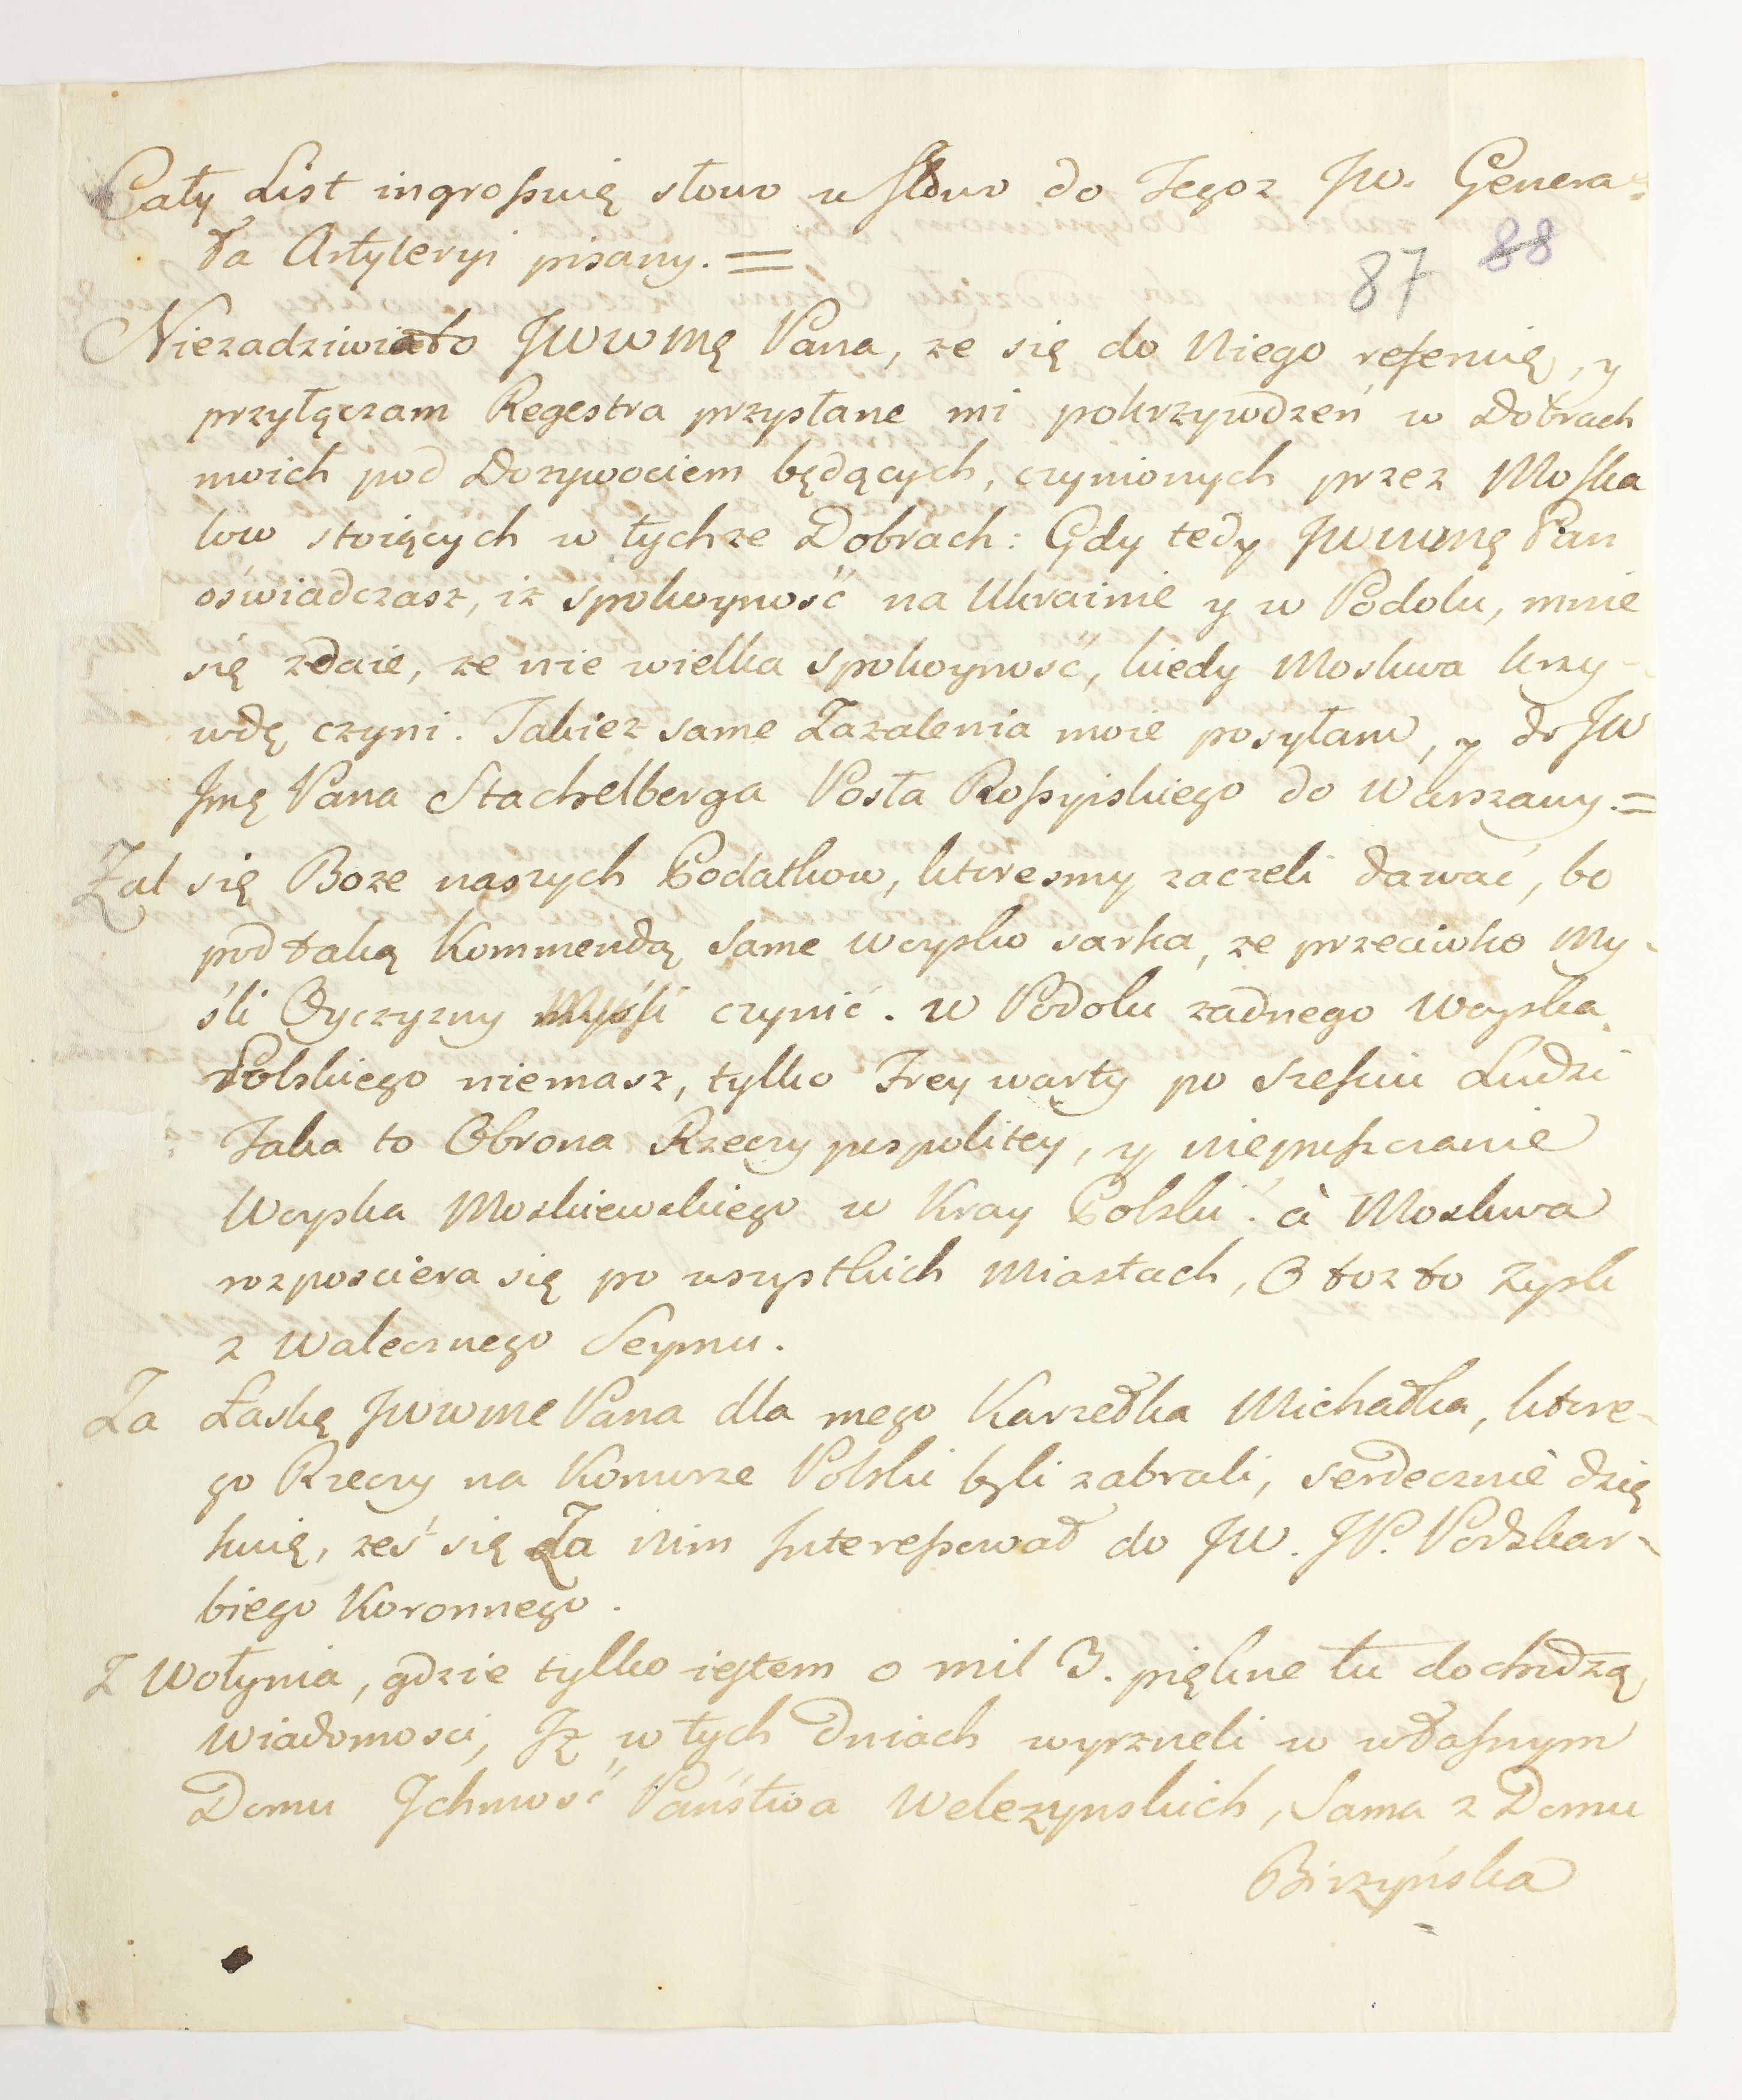 Cały List ingrossuię słowo w słowo do Tegoz Jw. Genera-
ła Artyleryi pisany. =
87 88
Niezadziwiało JWWMę Pana, ze się do Niego referuię, y
przyłączam Regestra przysłane mi pokrzywdzeń w Dobrach
moich pod Dozywociem będących, czynionych przez Moska
low stoiących w tychze Dobrach: Gdy tedy JWWmę Pan
oświadczasz, iz spokoyność na Ukrainie y w Podolu, mnie
się zdaie, ze nie wielka spokoyność, kiedy Moskwa krzy-
wdę czyni. Takiez same Zazalenia moie posyłam, y do JW
Jmę Pana Stachelberga Posła Rossyiskiego do Warszawy. =
Żal się Boze naszych Podatkow, ktoresmy zaczeli dawać, bo
pod taką Kommendą same woysko sarka, ze przeciwko my-
śli Oyczyzny czynić. w Podolu zadnego Woyska
Polskiego niemasz, tylko Frey warty po szesciu Ludzi
Taka to Obrona Rzeczy pospolitey, y niepuszczanie
Woyska Moskiewskiego w Kray Polski. à Moskwa
rozposciera się po wszystkich Miastach, O toz to Zysk
z walecznego Seymu.
Za Łaskę JWWMe Pana dla mego Karzełka Michałka, ktore-
go Rzeczy na Komorze Polski byli zabrali, serdecznie dzię
kuię,ześ się Za nim Interessował do JW. JP. Podskar-
biego Koronnego.
Z Wołynia, gdzie tylko iestem o mil 3. piękne tu dochodzą
Wiadomosci, Iz w tych dniach wyrzneli w własnym
Domu Ichmość Państwa Welezynskich, Sama z Domu
Birzyńska